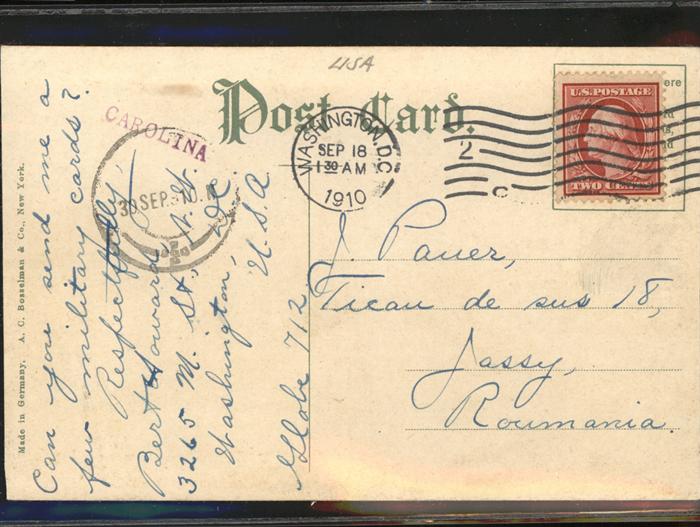 USA
Post Card.
CAROLINA
WASHINGTON, D.C.
SEP 18
1 30 AM
1910
2
C
U.S. POSTAGE
TWO CENTS
ere
30 SEP
Can you send me a
few military cards?
Respectfully,
Bert Howard
3265 M. St., N.W.
Washington, DC.
U.S.A
Globe 712
J. Pauer,
Ticau de sus 18,
Jassy,
Roumania.
Made in Germany. A. C. Bosselman & Co., New York.